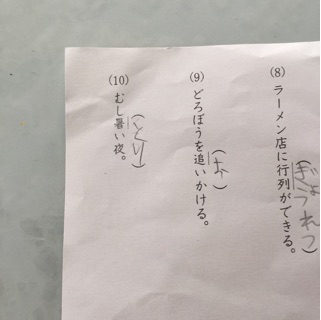 (8) ラーメン店に行列ができる。
(ぎょうれつ)
(9) どろぼうを追いかける。
(お)
(10) むし暑い夜。
(とり)